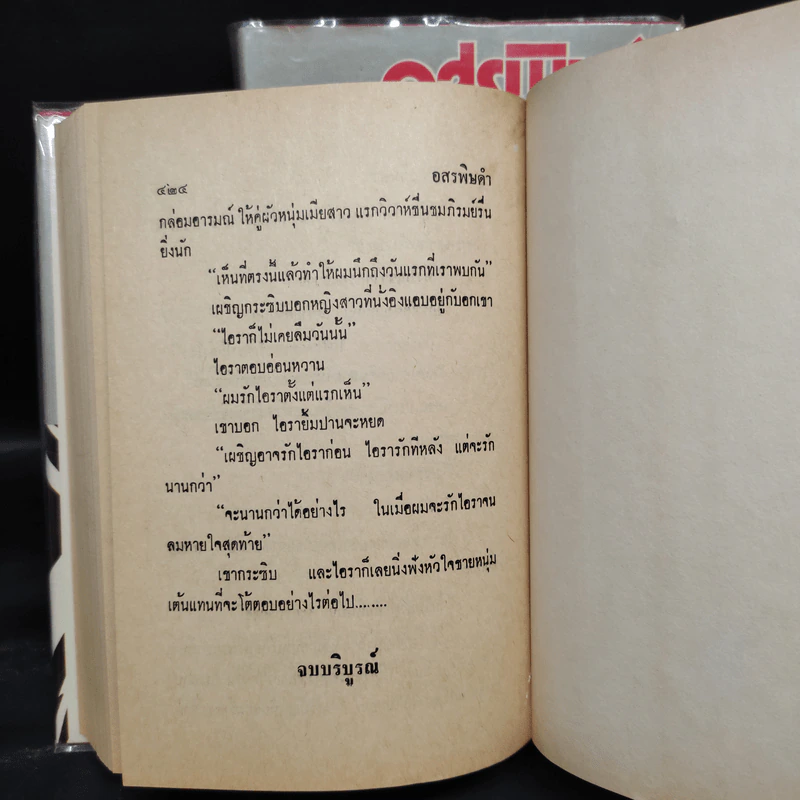 อสรพิษ
๔๒๔ อสรพิษดำ
กล่อมอารมณ์ ให้คู่ผัวหนุ่มเมียสาว แรกวิวาห์ชื่นชมภิรมย์รื่น
ยิ่งนัก
“เห็นที่ตรงนี้แล้วทำให้ผมนึกถึงวันแรกที่เราพบกัน”
เผชิญกระซิบบอกหญิงสาวที่นั่งอิงแอบอยู่กับอกเขา
“ไอราก็ไม่เคยลืมวันนั้น”
ไอราตอบอ่อนหวาน
“ผมรักไอราตั้งแต่แรกเห็น”
เขาบอก ไอรายิ้มปานจะหยด
“เผชิญอาจรักไอราก่อน ไอรารักทีหลัง แต่จะรัก
นานกว่า”
“จะนานกว่าได้อย่างไร ในเมื่อผมจะรักไอราจน
ลมหายใจสุดท้าย”
เขากระซิบ และไอราก็เลยนิ่งฟังหัวใจชายหนุ่ม
เต้นแทนที่จะโต้ตอบอย่างไรต่อไป........
จบบริบูรณ์